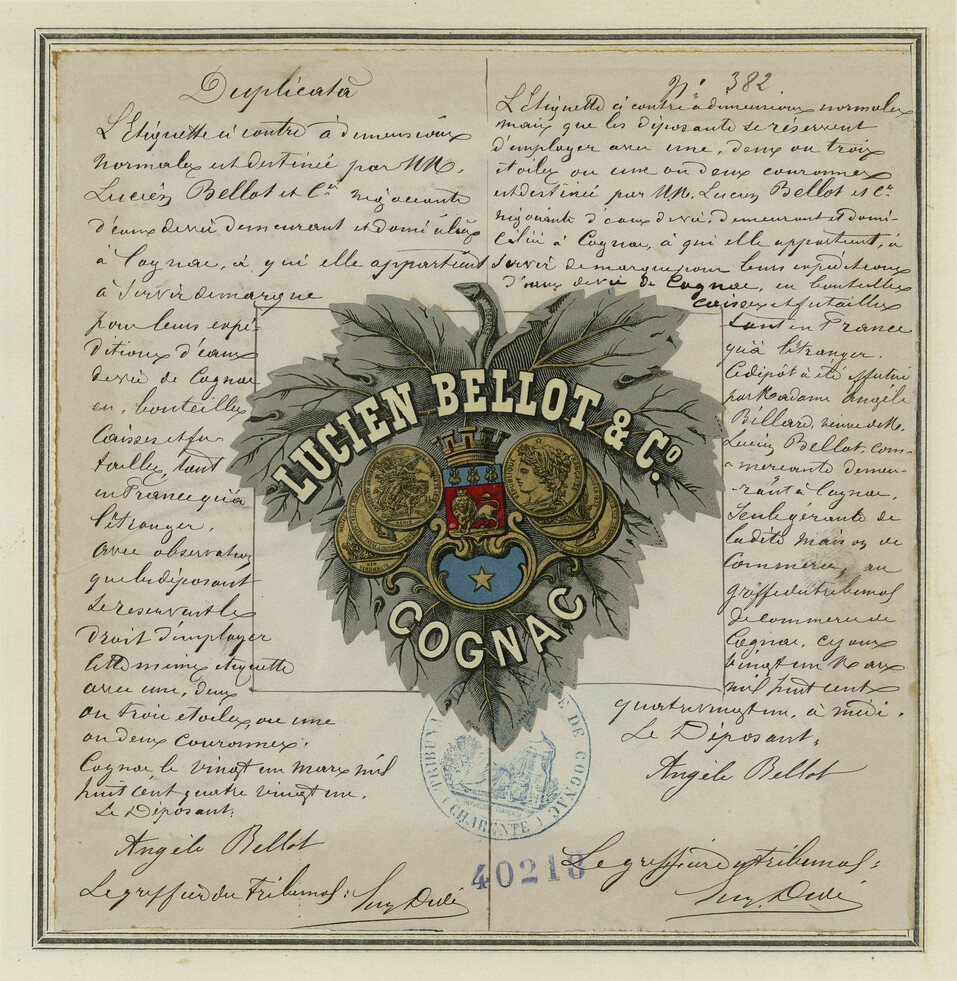 Duplicata
L'Etiquette ci contre à dimensions
normales est destinée par MM.
Lucien Bellot et Cie négociants
d'eaux de vie demeurant et domiciliés
à Cognac, à qui elle appartient
à servir de marque
pour leurs expé-
ditions d'eaux
de vie de Cognac
en bouteilles
caisses et fu-
tailles tant
en France qu'à
l'étranger.
avec observation
que les déposants
se réservent le
droit d'employer
cette même etiquette
avec une, deux
ou trois etoiles, ou une
ou deux couronnes.
Cognac le vingt un Mars mil
huit cent quatre vingt un.
Le Déposant.
Angèle Bellot
Le greffier du Tribunal:
No 382
L'Etiquette ci contre à dimensions normales
mais que les déposants se réservent
d'employer avec une, deux ou trois
étoiles ou une ou deux couronnes
est destinée par MM. Lucien Bellot et Cie
négociants d'eaux de vie, demeurant et domi-
ciliés à Cognac, à qui elle appartient, à
servir de marque pour leurs expéditions
d'eaux de vie de Cognac, en bouteilles
caisses et futailles
tant en France
qu'à l'étranger.
Ce dépôt a été effectué
par Madame Angèle
Billard, veuve de M.
Lucien Bellot, com-
-merçante demeu-
-rant à Cognac,
seule gérante de
la dite maison de
Commerce, au
greffe du tribunal
de commerce de
Cognac, ce jour
vingt un Mars
mil huit cent
quatre vingt un, à midi.
Le Déposant,
Angèle Bellot
Le greffier du tribunal:
LUCIEN BELLOT & Co.
COGNAC
TRIBUNAL DE COGNAC
(CHARENTE)
40218